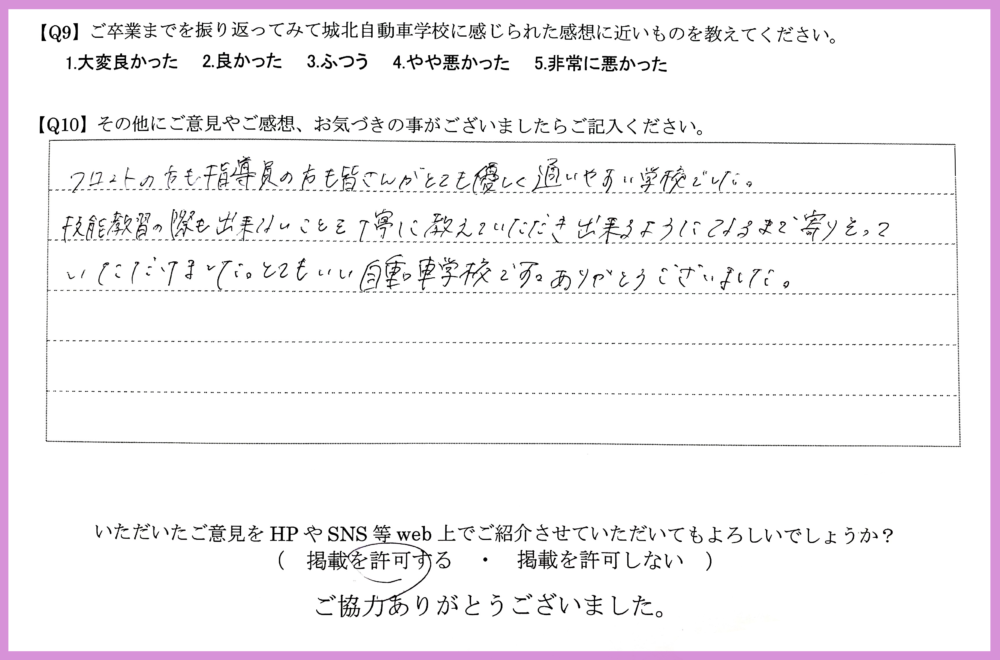 【Q9】ご卒業までを振り返ってみて城北自動車学校に感じられた感想に近いものを教えてください。
1.大変良かった 2.良かった 3.ふつう 4.やや悪かった 5.非常に悪かった
【Q10】その他にご意見やご感想、お気づきの事がございましたらご記入ください。
フロントの方も指導員の方も皆さんがとても優しく通いやすい学校でした。
技能教習の際も出来ないことを丁寧に教えていただき出来るようになるまで寄りそって
いただけました。とてもいい自動車学校です。ありがとうございました。
いただいたご意見をHPやSNS等web上でご紹介させていただいてもよろしいでしょうか？
（ 掲載を許可する ・ 掲載を許可しない ）
ご協力ありがとうございました。